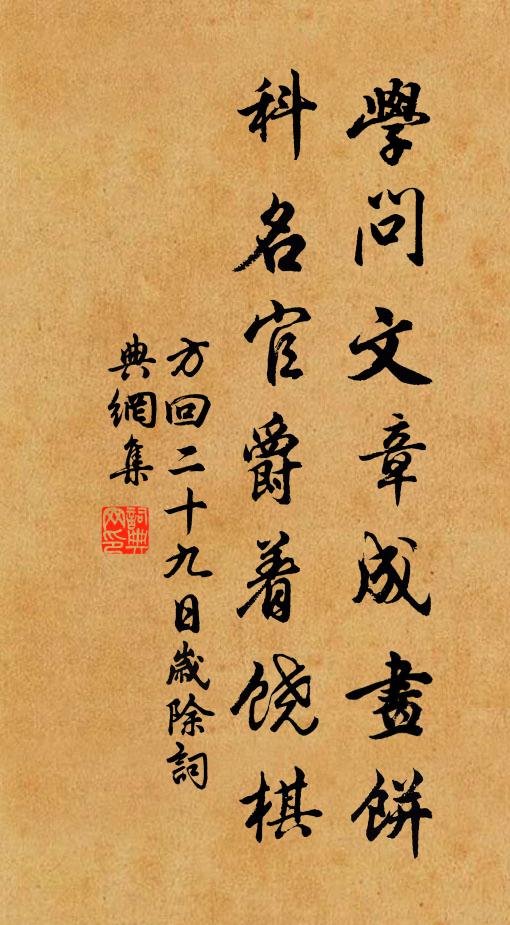 學問文章成畫餅
科名官爵着饒棋
方回二十九日歲除詞
典網集
詞典
網印